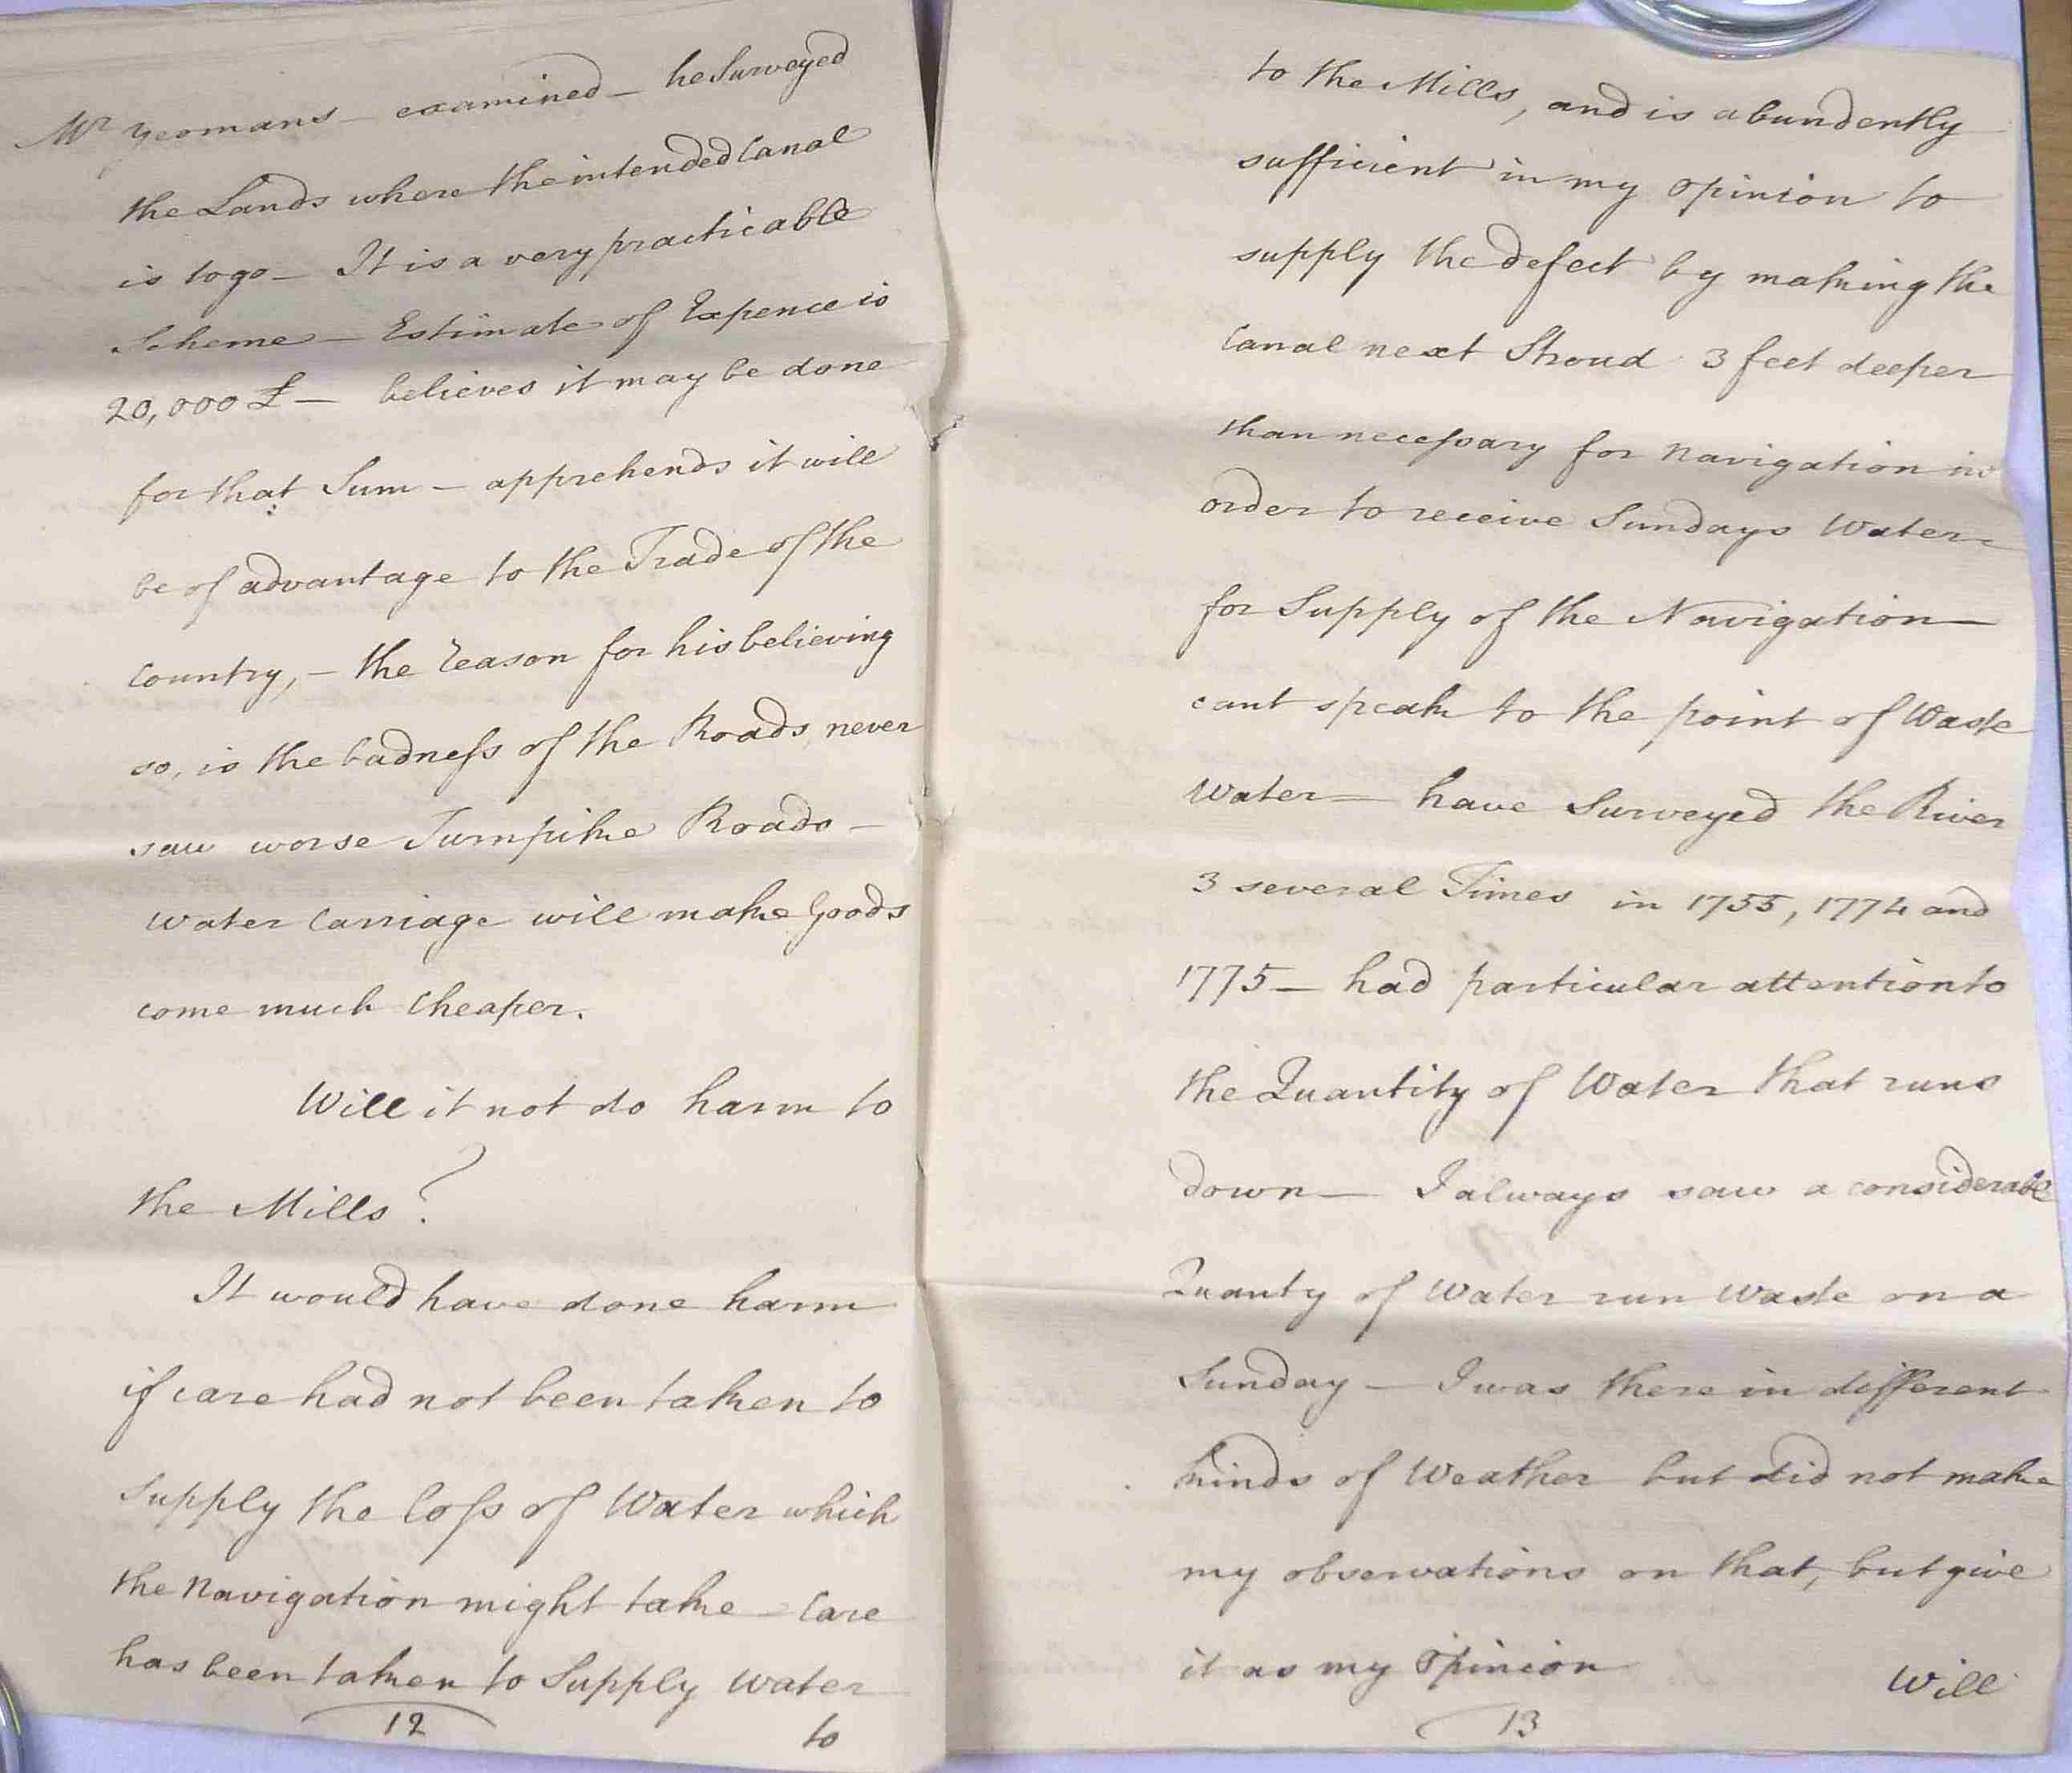 Mr Yeomans — examined — he Surveyed
the Lands where the intended Canal
is to go — It is a very practicable
Scheme — Estimate of Expence is
20,000 £ — believes it may be done
for that Sum — apprehends it will
be of advantage to the Trade of the
Country, — the reason for his believing
so, is the badneſs of the Roads never
saw worse Turnpike Roads —
Water Carriage will make Goods
come much Cheaper.
Will it not do harm to
the Mills?
It would have done harm
if care had not been taken to
Supply the loſs of Water which
the Navigation might take — Care
has been taken to Supply Water
12
to
to the Mills, and is abundently
sufficient in my opinion to
supply the defect by making the
Canal next Stroud 3 feet deeper
than neceſsary for Navigation in
order to receive Sundays Water
for Supply of the Navigation —
cant speak to the point of Waste
Water — have Surveyed the River
3 several Times in 1755, 1774 and
1775 — had particular attention to
the Quantity of Water that runs
down — I always saw a considerable
Quanty of Water run Waste on a
Sunday — I was there in different
kinds of Weather but did not make
my observations on that, but give
it as my Opinion
Will
13